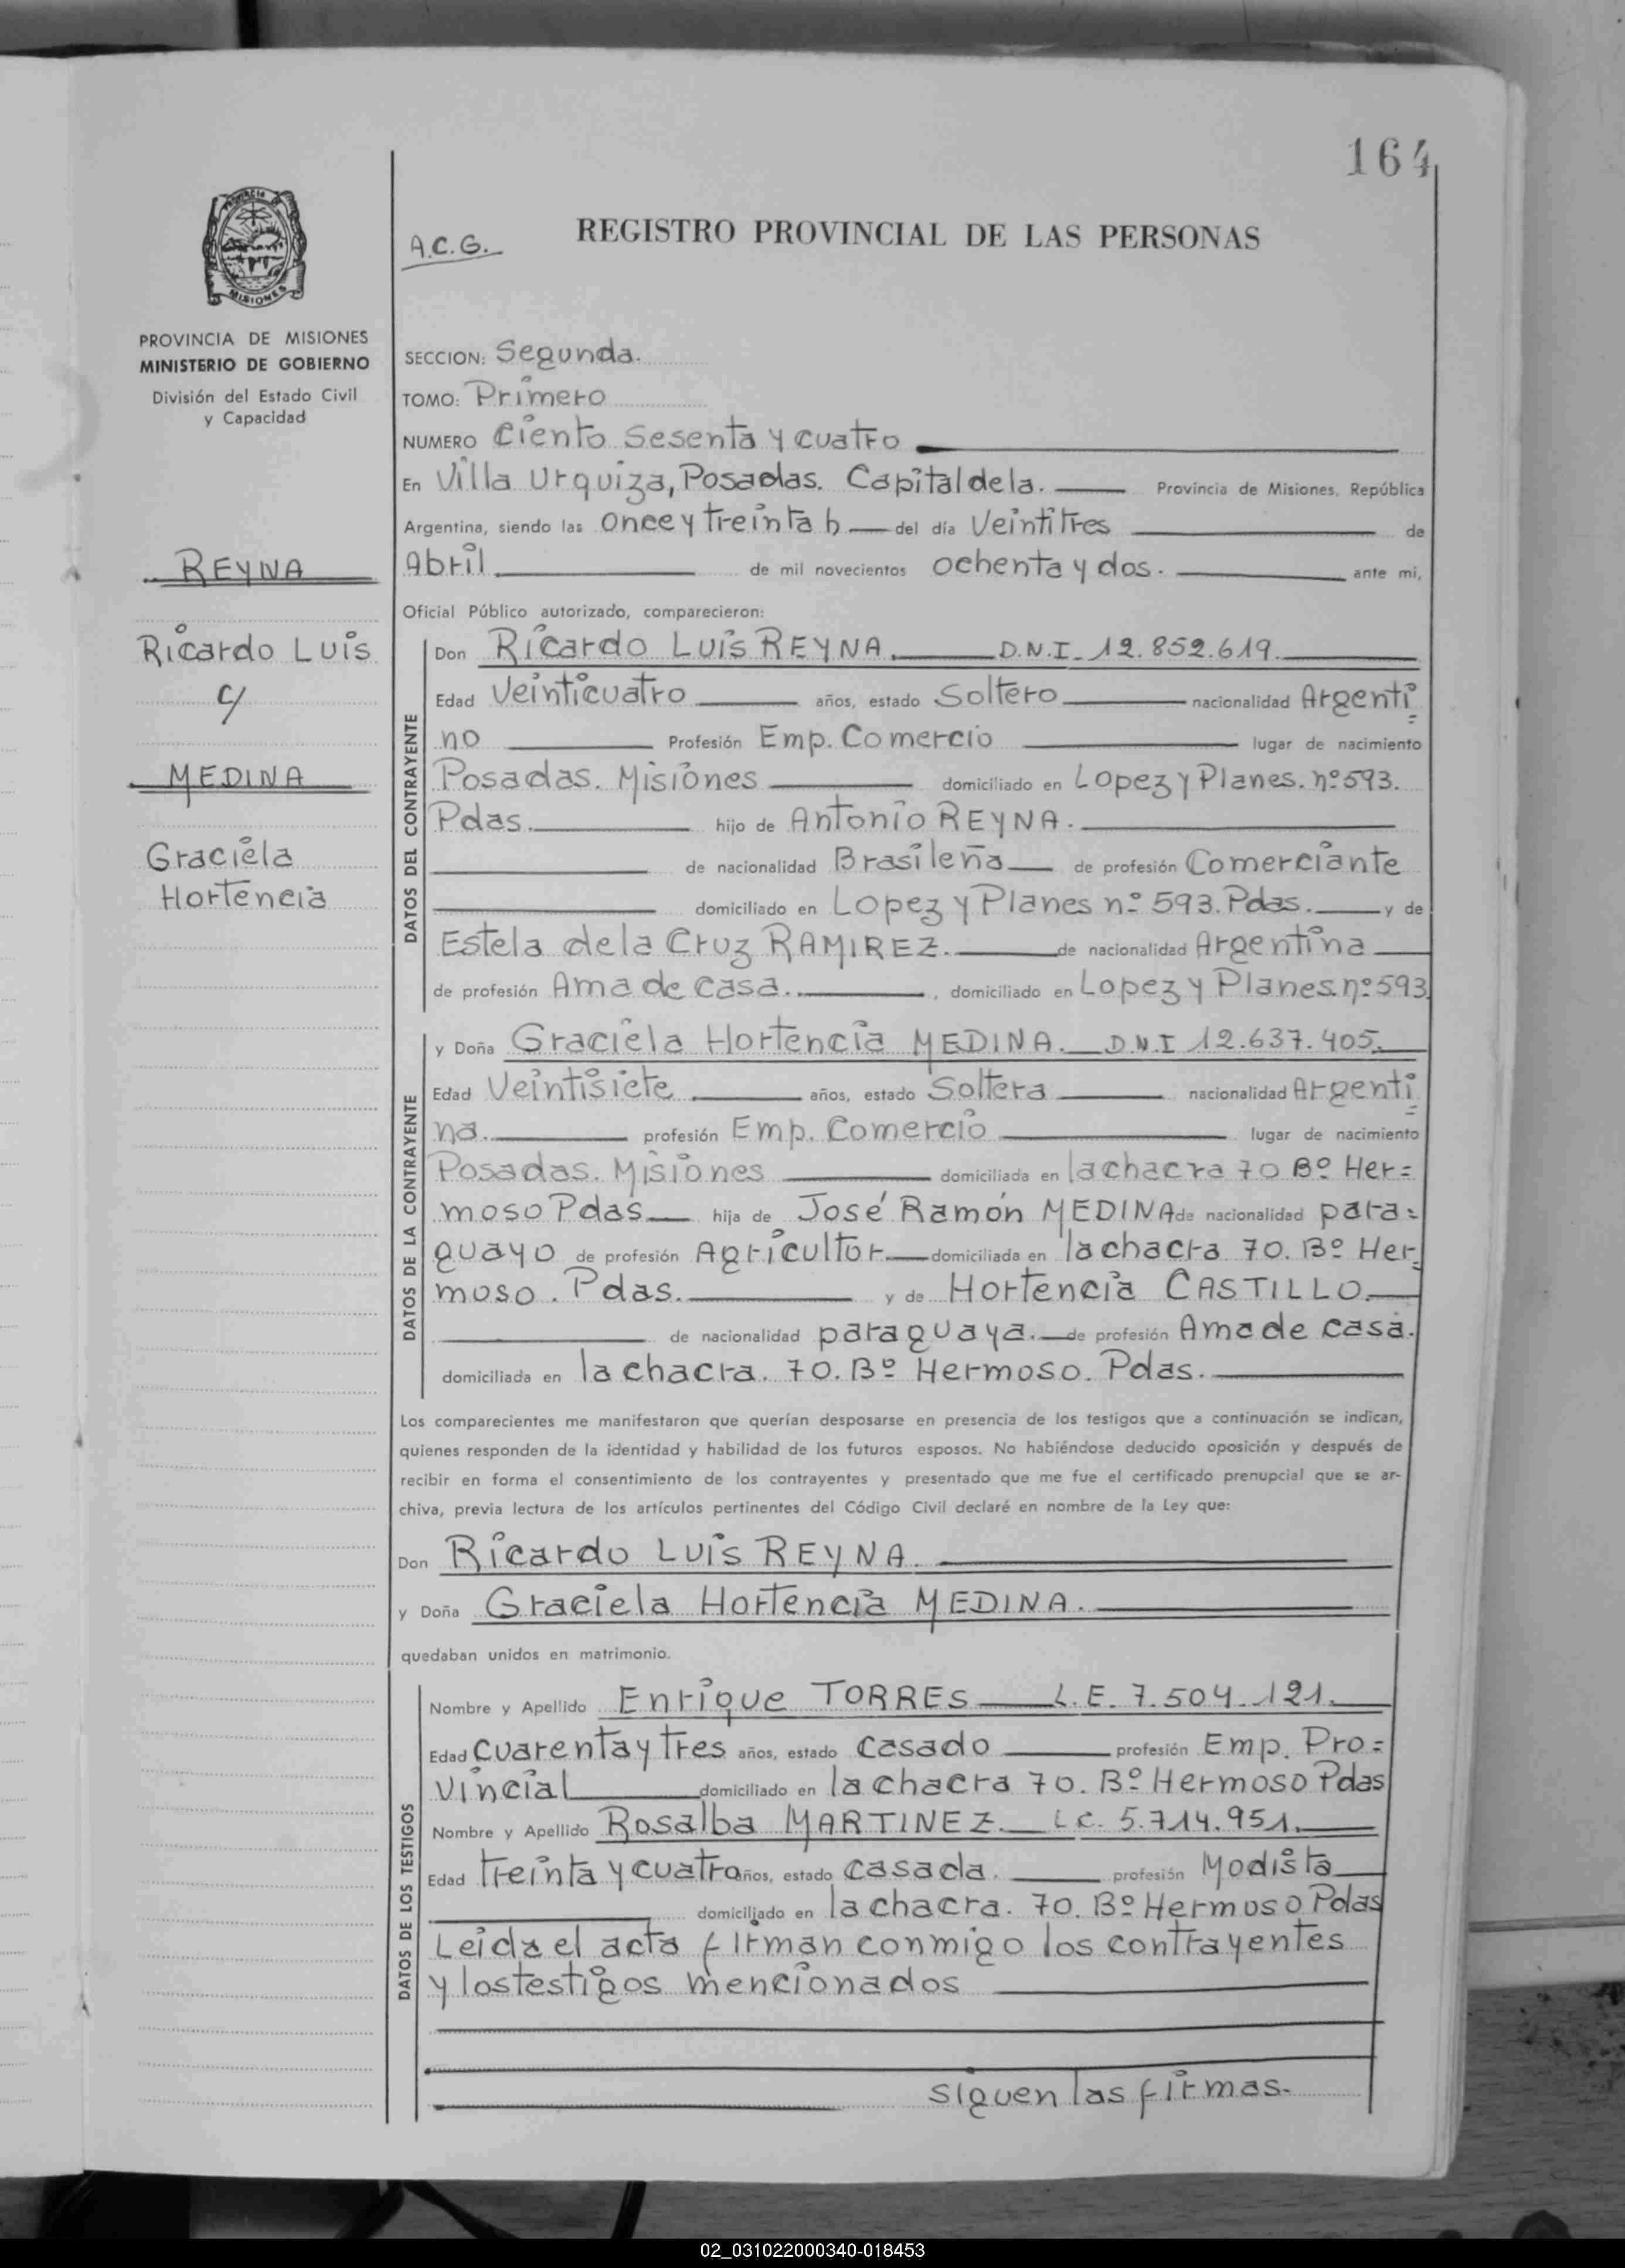 164
PROVINCIA
MISIONES
PROVINCIA DE MISIONES
MINISTERIO DE GOBIERNO
División del Estado Civil
y Capacidad
REYNA
Ricardo Luis
c/
MEDINA
Graciela
Hortencia
A.C.G.
REGISTRO PROVINCIAL DE LAS PERSONAS
SECCION: Segunda.
TOMO: Primero
NUMERO Ciento Sesenta y cuatro
En Villa Urquiza, Posadas. Capital de la. Provincia de Misiones, República
Argentina, siendo las once y treinta h del día Veintitres de
Abril de mil novecientos ochenta y dos. ante mi,
Oficial Público autorizado, comparecieron:
DATOS DEL CONTRAYENTE
Don Ricardo Luis REYNA. D.N.I. 12.852.619.
Edad Veinticuatro años, estado Soltero nacionalidad Argenti=
no Profesión Emp. Comercio lugar de nacimiento
Posadas. Misiones domiciliado en Lopez y Planes. nº 593.
Pdas. hijo de Antonio REYNA.
de nacionalidad Brasileña de profesión Comerciante
domiciliado en Lopez y Planes nº 593. Pdas. y de
Estela de la Cruz RAMIREZ. de nacionalidad Argentina
de profesión Ama de casa. , domiciliado en Lopez y Planes. nº 593
DATOS DE LA CONTRAYENTE
y Doña Graciela Hortencia MEDINA. D.N.I 12.637.405.
Edad Veintisiete años, estado Soltera nacionalidad Argenti=
na. profesión Emp. Comercio lugar de nacimiento
Posadas. Misiones domiciliada en la chacra 70 Bº Her=
moso Pdas hija de José Ramón MEDINA de nacionalidad para=
guayo de profesión Agricultor domiciliada en la chacra 70. Bº Her=
moso. Pdas. y de Hortencia CASTILLO.
de nacionalidad paraguaya. de profesión Ama de casa.
domiciliada en la chacra. 70. Bº Hermoso. Pdas.
Los comparecientes me manifestaron que querían desposarse en presencia de los testigos que a continuación se indican,
quienes responden de la identidad y habilidad de los futuros esposos. No habiéndose deducido oposición y después de
recibir en forma el consentimiento de los contrayentes y presentado que me fue el certificado prenupcial que se ar-
chiva, previa lectura de los artículos pertinentes del Código Civil declaré en nombre de la Ley que:
Don Ricardo Luis REYNA.
y Doña Graciela Hortencia MEDINA.
quedaban unidos en matrimonio.
DATOS DE LOS TESTIGOS
Nombre y Apellido Enrique TORRES L.E. 7.504.121.
Edad Cuarenta y tres años, estado casado profesión Emp. Pro=
vincial domiciliado en la chacra 70. Bº Hermoso Pdas
Nombre y Apellido Rosalba MARTINEZ. L.C. 5.714.951.
Edad treinta y cuatro años, estado casada. profesión Modista
domiciliado en la chacra. 70. Bº Hermoso Pdas
Leida el acta firman conmigo los contrayentes
y los testigos mencionados
siguen las firmas.
02_031022000340-018453